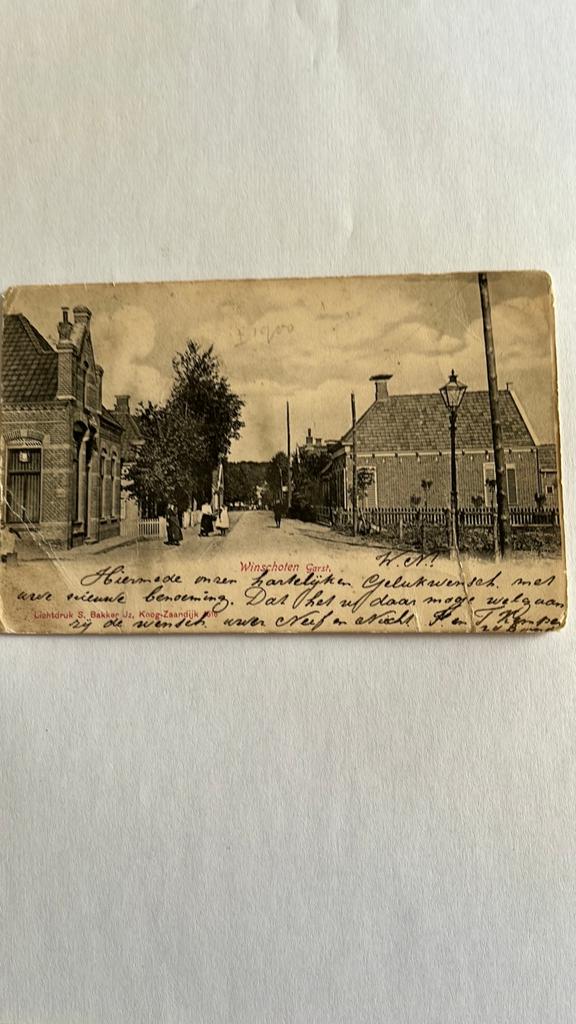 ± 1900
Winschoten Garst.
W. N.!
Hiermede onzen hartelijken Gelukwensch met
uwe nieuwe benoeming. Dat het u daar moge welgaan
Lichtdruk S. Bakker Jz, Koog-Zaandijk
zij de wensch uwer Neef en Nicht